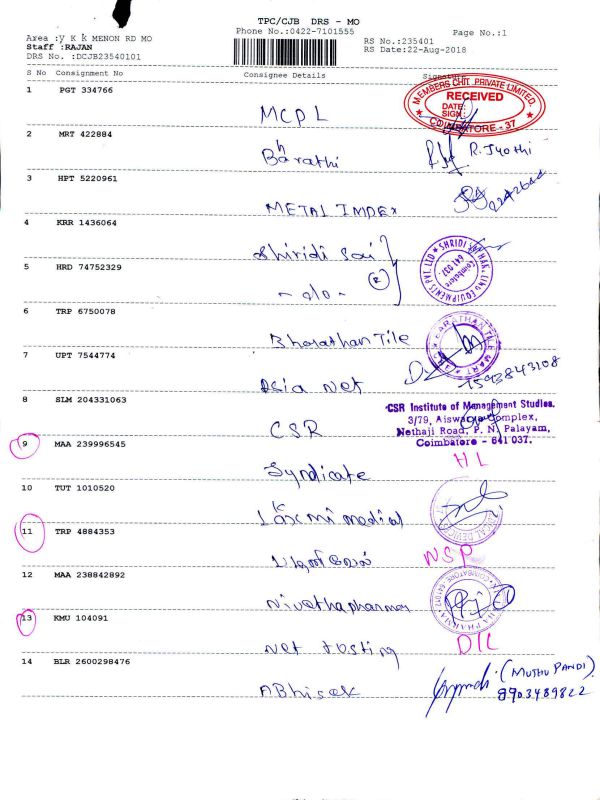 TPC/CJB DRS - MO
Phone No.:0422-7101555
Page No.:1
Area :y K k MENON RD MO
Staff :RAJAN
DRS No. :DCJB23540101
RS No.:235401
RS Date:22-Aug-2018
S No Consignment No Consignee Details Signature
1 PGT 334766
MCPL
MEMBERS CHIT PRIVATE LIMITED
RECEIVED
DATE:
SIGN:
COIMBATORE - 37
2 MRT 422884
Barathi
R. Jyothi
3 HPT 5220961
METAL INDEX
4 KRR 1436064
Shiridi Sai
5 HRD 74752329
- do -
6 TRP 6750078
Bharathan Tile
7 UPT 7544774
Asia Net
7593843108
8 SLM 204331063
CSR
CSR Institute of Management Studies.
3/79, Aiswarya Complex,
Nethaji Road, P. N. Palayam,
Coimbatore - 641 037.
9 MAA 239996545
Syndicate
HL
10 TUT 1010520
Laxmi medical
11 TRP 4884353
NSP
12 MAA 238842892
Nivethapharma
13 KMU 104091
Net Tosting
D/L
14 BLR 2600298476
ABhisek
(MUTHU PANDI)
8903489822